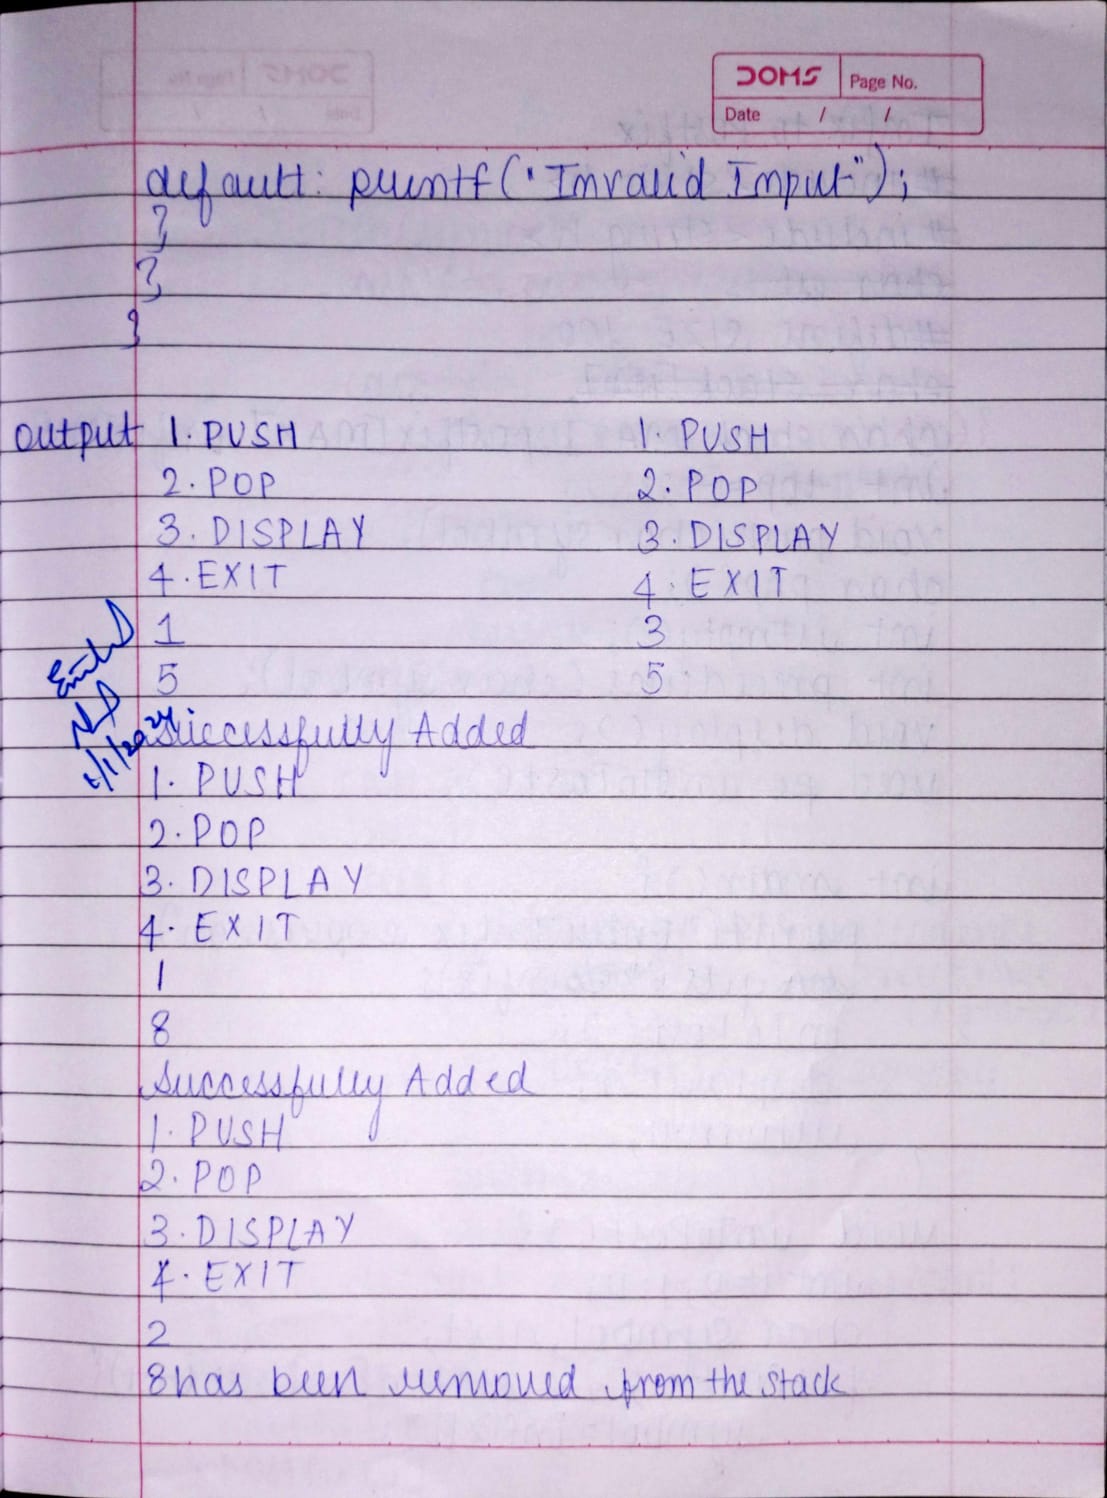 DOMS Page No.
Date / /
default: printf("Invalid Input");
}
}
}
Output 1. PUSH
2. POP
3. DISPLAY
4. EXIT
1
5
Successfully Added
1. PUSH
2. POP
3. DISPLAY
4. EXIT
1
8
Successfully Added
1. PUSH
2. POP
3. DISPLAY
4. EXIT
2
8 has been removed from the stack
1. PUSH
2. POP
3. DISPLAY
4. EXIT
3
5